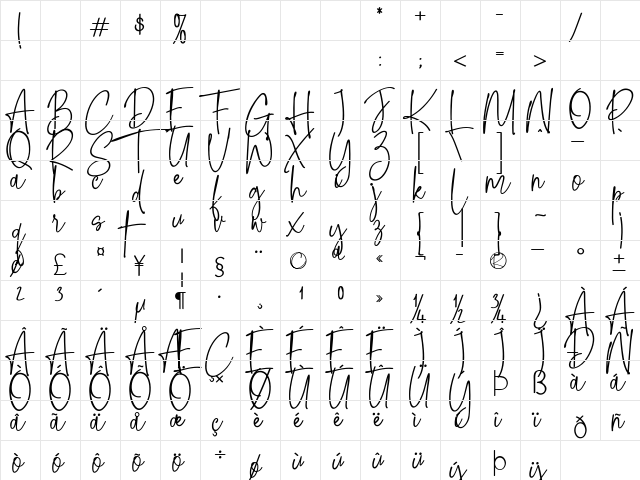 ! # $ % * + - /
: ; < = >
A B C D E F G H I J K L M N O P
Q R S T U V W X Y Z [ \ ] —
a b c d e f g h i j k l m n o p
q r s t u v w x y z { | } ~
¢ £ ¤ ¥ ¦ § ¨ © « ¬ - ® ¯ ° ±
² ³ ´ µ ¶ · ¸ ¹ º » ¼ ½ ¾ ¿ À Á
Â Ã Ä Å Æ Ç È É Ê Ë Ì Í Î Ï Ð Ñ
Ò Ó Ô Õ Ö × Ø Ù Ú Û Ü Ý Þ ß à á
â ã ä å æ ç è é ê ë ì í î ï ð ñ
ò ó ô õ ö ÷ ø ù ú û ü ý þ ÿ